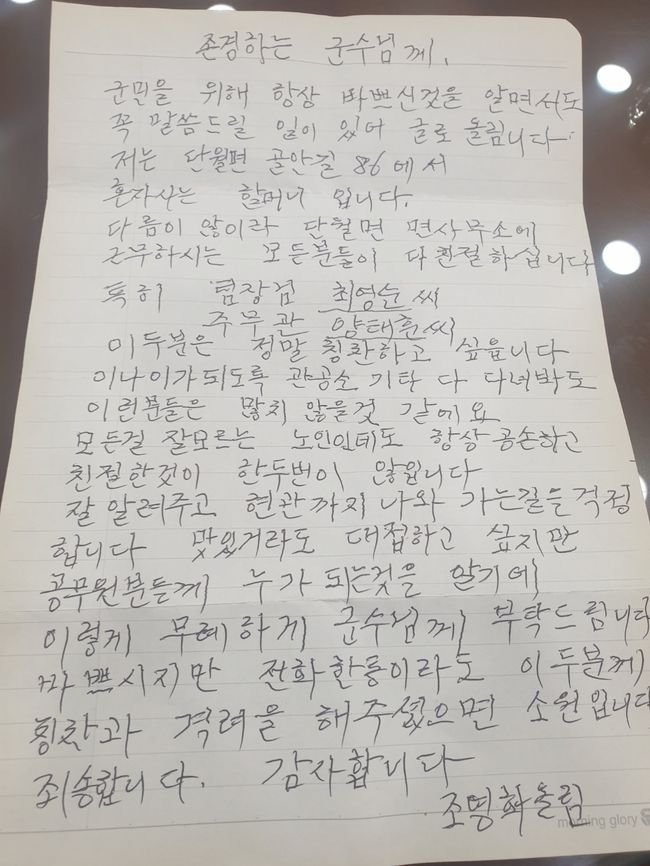 존경하는 군수님께.
군민을 위해 항상 바쁘신것을 알면서도
꼭 말씀드릴 일이 있어 글로 올립니다.
저는 단월면 골안길 86에서
혼자사는 할머니 입니다.
다름이 않이라 단월면 면사무소에
근무하시는 모든분들이 다 친절하십니다
특히 팀장겸 최영순씨
주무관 양태훈씨
이두분은 정말 칭찬하고 싶읍니다
이나이가되도록 관공소 기타 다 다녀봐도
이런분들은 많치 않을것 같에요
모든걸 잘모르는 노인인데도 항상공손하고
친절한것이 한두번이 않입니다
잘 알려주고 현관까지 나와 가는길을 걱정
합니다 맛있거라도 대접하고 싶지만
공무원분들께 누가 되는것을 알기에
이렇게 무례하게 군수님께 부탁드림니다
바쁘시지만 전화한통이라도 이두분께
칭찬과 격려을 해주셨으면 소원입니다
죄송합니다. 감사합니다
조명화올림
morning glory